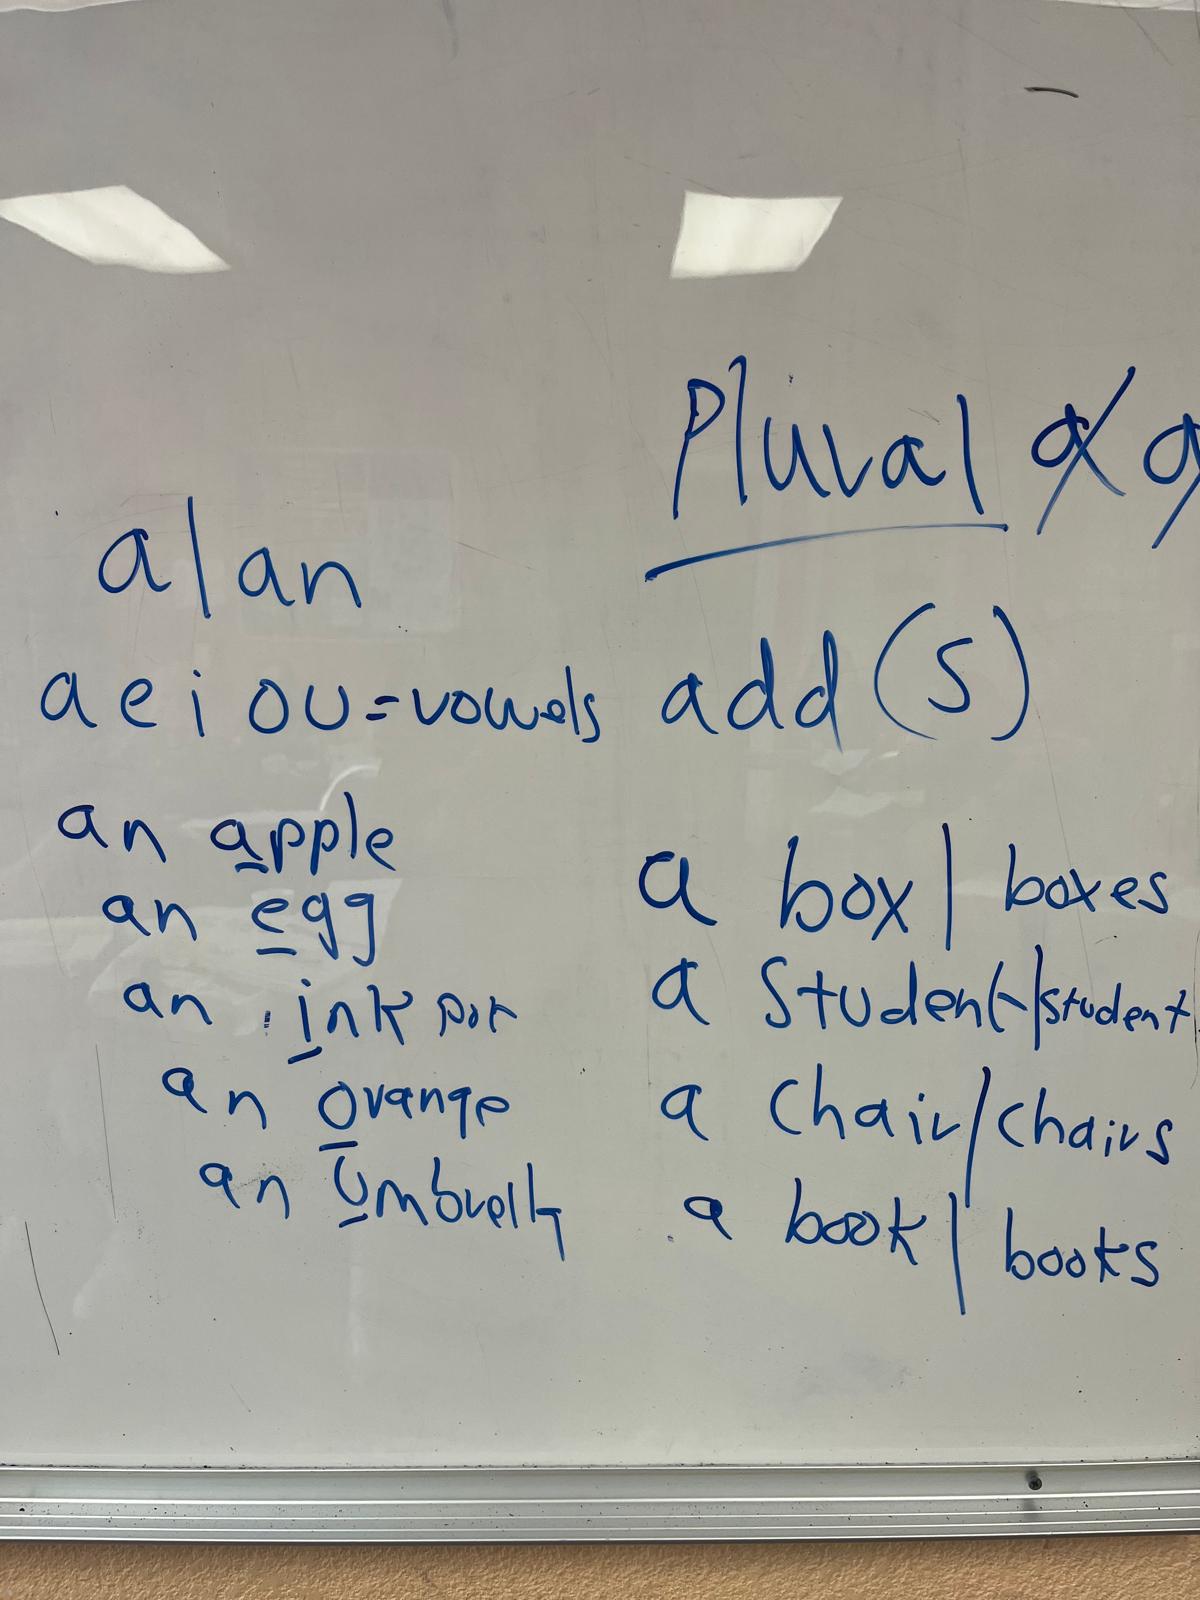 a|an
a e i o u = vowels
an apple
an egg
an ink pot
an orange
an umbrella
Plural a
add (s)
a box | boxes
a student/student
a chair/chairs
a book | books